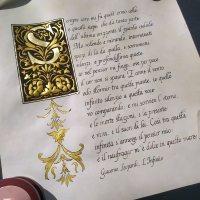 Sempre caro mi fu quest'ermo colle
e questa siepe, che da tanta parte
dell'ultimo orizzonte il guardo esclude.
Ma sedendo e mirando, interminati
spazi di là da quella, e sovrumani
silenzi, e profondissima quiete
io nel pensier mi fingo, ove per poco
il cor non si spaura. E come il vento
odo stormir tra queste piante, io quello
infinito silenzio a questa voce
vo comparando: e mi sovvien l'eterno
e le morte stagioni, e la presente
e viva, e il suon di lei. Così tra questa
infinità s'annega il pensier mio:
e il naufragar m'è dolce in questo mare.
Giacomo Leopardi, L'Infinito